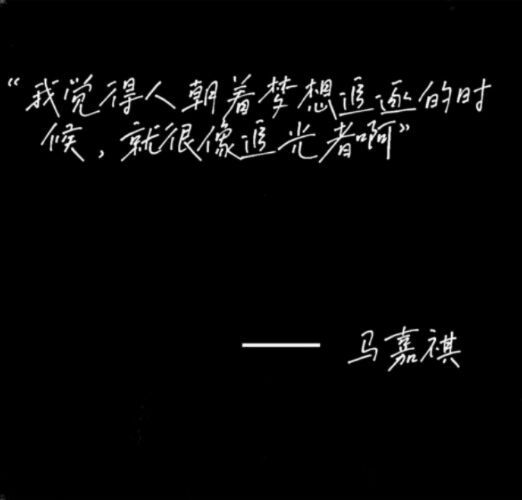 “我觉得人朝着梦想追逐的时
候，就很像追光者啊”
—— 马嘉祺